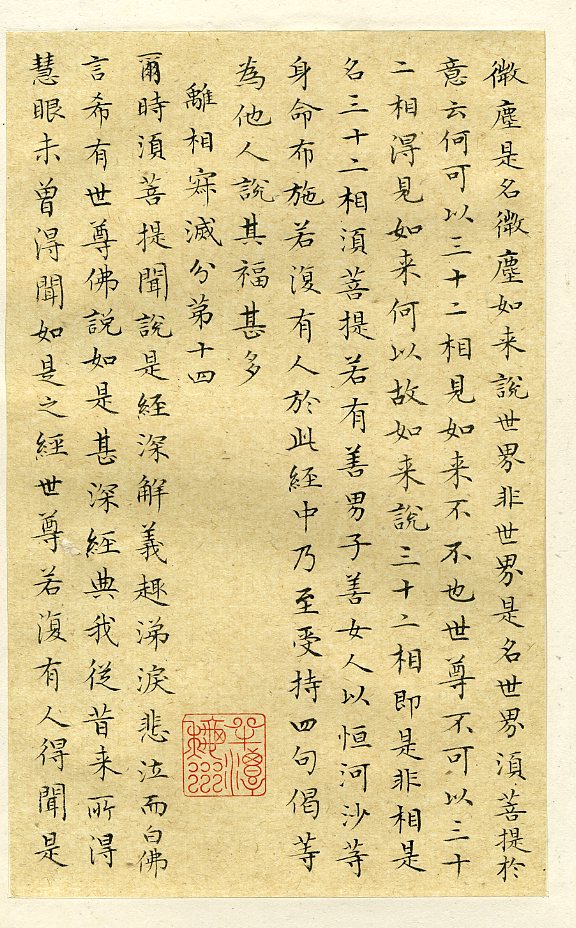 微塵是名微塵如来說世界非世界是名世界須菩提於
意云何可以三十二相見如来不不也世尊不可以三十
二相得見如来何以故如来說三十二相即是非相是
名三十二相須菩提若有善男子善女人以恒河沙等
身命布施若復有人於此経中乃至受持四句偈等
為他人說其福甚多
離相寂滅分第十四
爾時須菩提聞說是経深解義趣涕淚悲泣而白佛
言希有世尊佛説如是甚深經典我従昔来所得
慧眼未曾得聞如是之經世尊若復有人得聞是